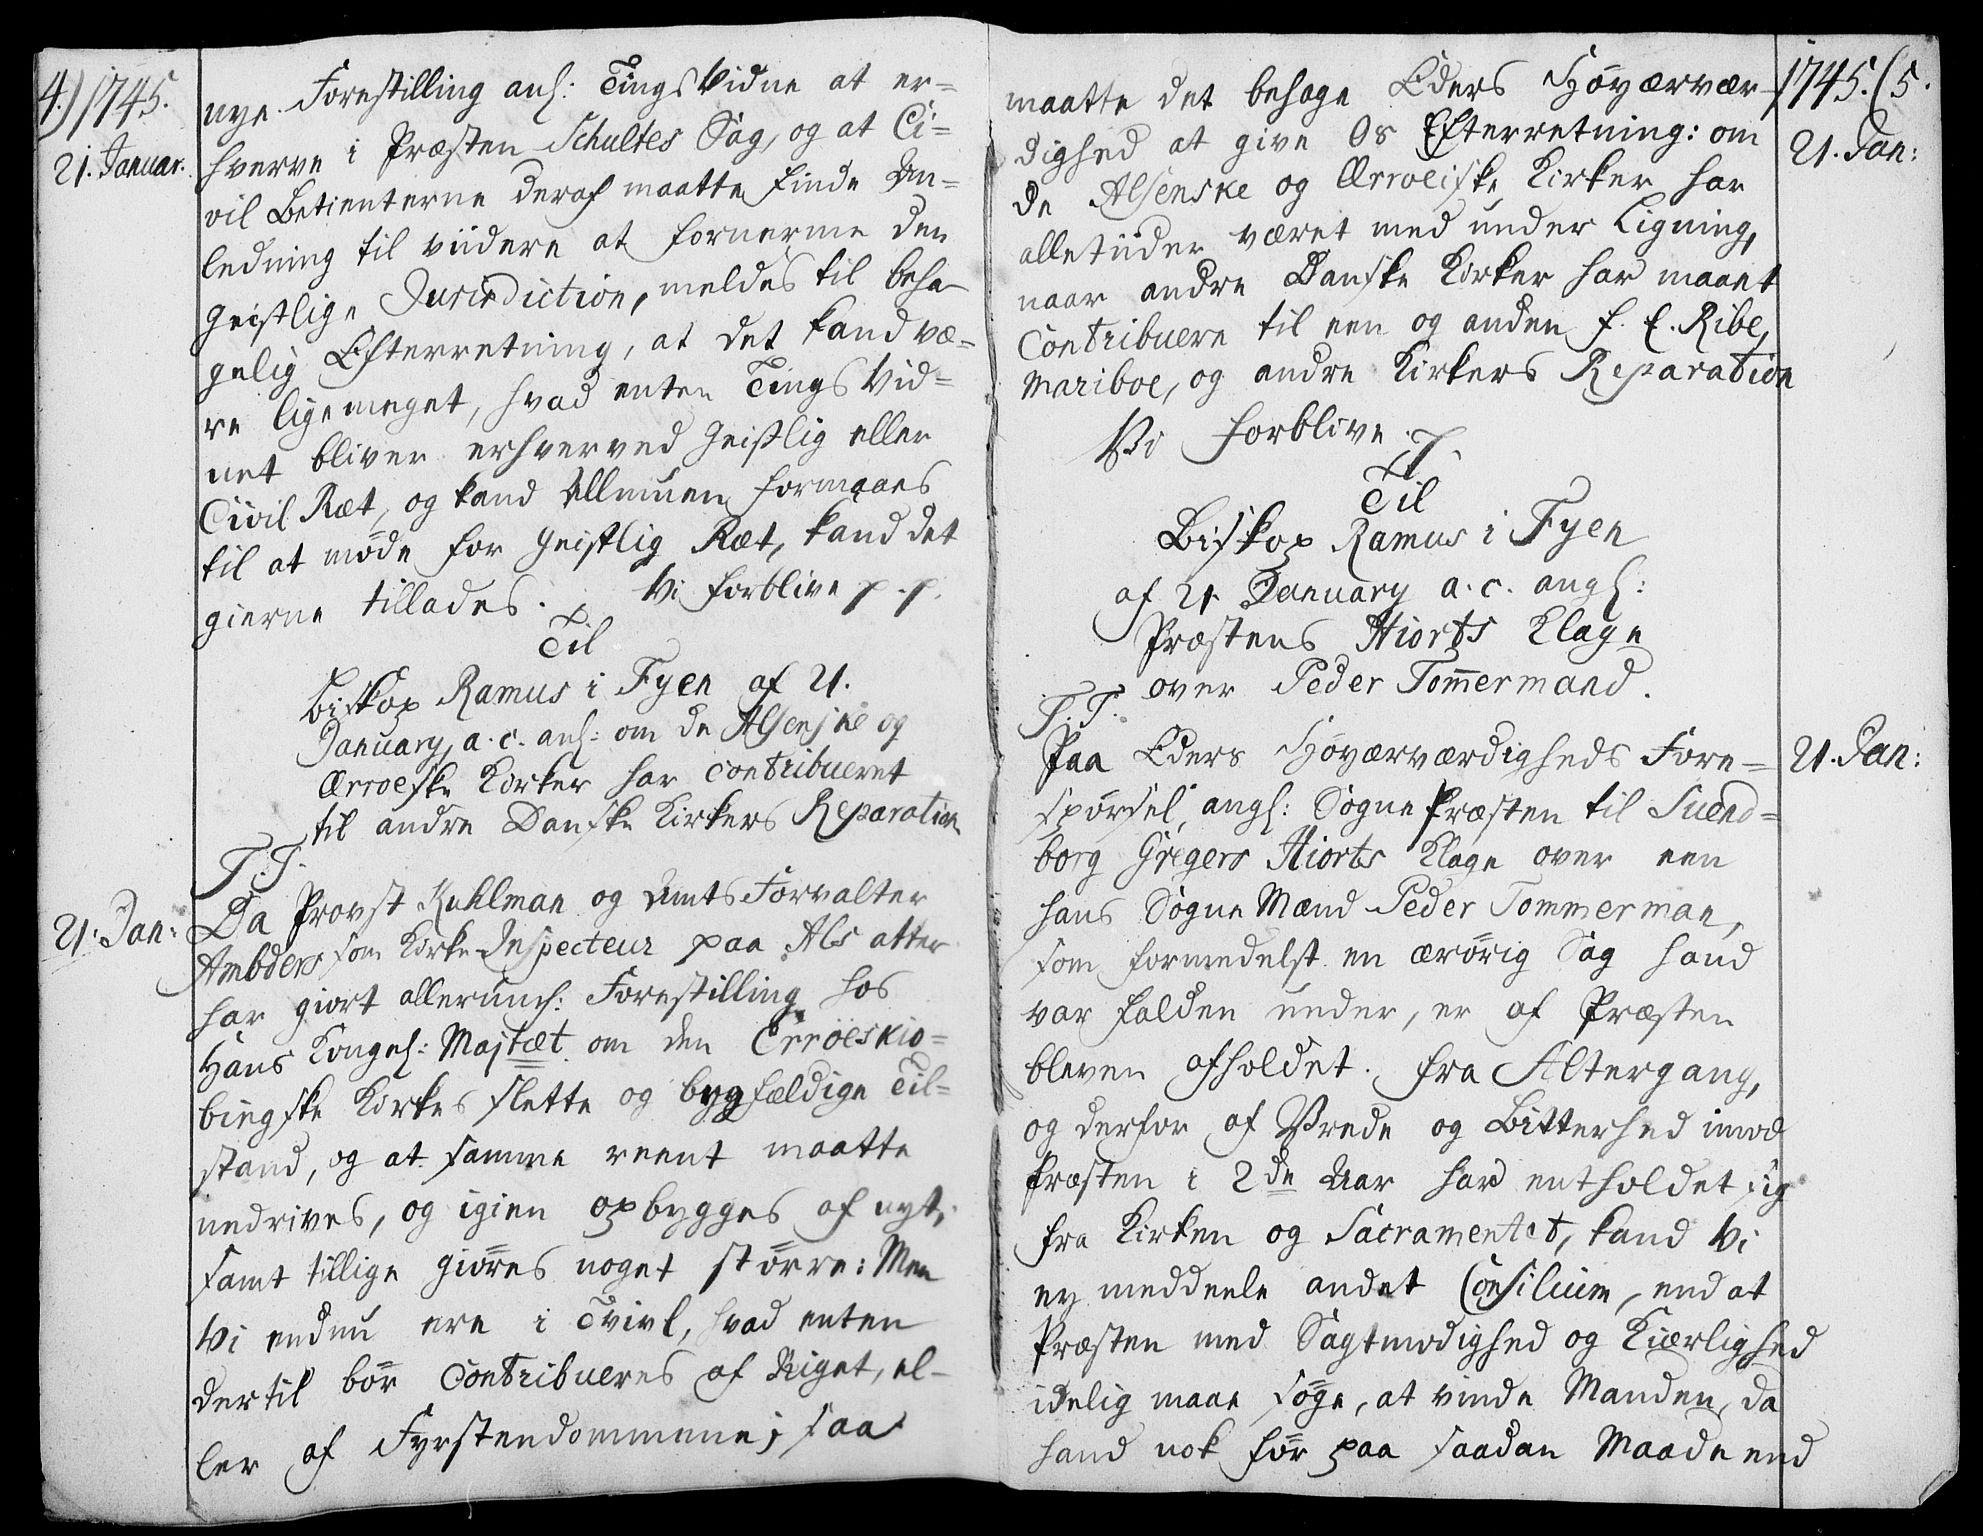 4.) 1745.
21. Januar.
nye Forestilling anl: Tings Vidne at er=
hverve i Præsten Schultes Sag, og at Ci=
vil Betienterne deraf maatte finde An=
ledning til viidere at fornerme den
geistlige Jurisdiction, meldes til beha-
gelig Efterretning, at det kand væ=
re lige meget, hvad enten Tings Vid=
net bliver erhverved geistlig eller
Civil Ræt, og kand Allmuen formaaes
til at møde for geistlig Ræt, kand det
gierne tillades. Vi forblive p. p.
Til
Biskop Ramus i Fyen af 21.
January, a. c. anl: om de Alsenske og
Ærroeske Kirker har contribueret
til andre Danske Kirkers Reparation
T. T.
21. Jan:
Da Provst Kuhlman og Amts Forvalter
Ambders som Kirke-Inspecteur paa Als atter
har giort allerund: Forestilling hos
Hans Kongel: Majtæt om den Erröeskiö=
bingske Kirkes slette og bygfældige Til=
stand, og at samme reent maatte
nedrives, og igien opbygges af nyt,
samt tillige giöres noget större: Men
Vi endnu ere i Tvivl, hvad enten
dertil bör Contribueres af Riget, el-
ler af Fyrstendommene; saa
1745. (5.
21. Jan:
maatte det behage Eders Höyærvær-
dighed at give Os Efterretning: om
de Alsenske og Ærroeiske Kirker har
alletiider været med under Ligning,
naar andre Danske Kirker har maaet
Contribuere til een og anden f. E. Ribe,
Mariboe, og andre Kirkers Reparation
Vi forblive p.
Til
Biskop Ramus i Fyen
af 21. January a. c. angl:
Præstens Hiorts Klage
over Peder Tom̄ermand.
T. T.
21. Jan:
Paa Eders Höyærværdigheds Fore=
spörsel, angl: Sogne Præsten til Suend=
borg Gregers Hiorts Klage over een
hans Sogne Mænd Peder Tommerman,
som formedelst en ærörig Sag hand
var falden under, er af Præsten
bleven afholdet fra Altergang,
og derfor af Vrede og Bitterhed imod
Præsten i 2de Aar har entholdet sig
fra Kirken og Sacramentet, kand Vi
ey meddeele andet Consilium, end at
Præsten med Sagtmodighed og Kiærlighed
idelig maae söge, at vinde Manden, da
hand nok för paa saadan Maade end